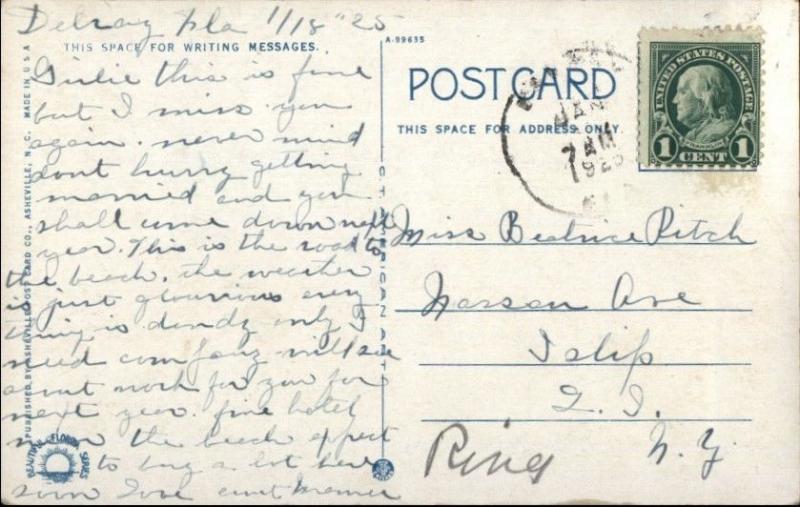 Delray Fla 1/18 "25
THIS SPACE FOR WRITING MESSAGES.
Girlie this is fine
but I miss you
again. never mind
dont hurry getting
married and you
shall come down next
year. This is the road to
the beach. the weather
is just glourious every
thing is dandy only I
need company will see
about work for you for
next year. fine hotel
near the beach expect
to buy a lot here
soon Love aunt
PUBLISHED BY ASHEVILLE POST CARD CO., ASHEVILLE, N. C. MADE IN U S A
BEAUTIFUL FLORIDA SERIES
A-99635
POST CARD
THIS SPACE FOR ADDRESS ONLY.
JAN
7 AM
1925
UNITED STATES POSTAGE
FRANKLIN
1 CENT 1
Miss Beatrice Pitch
Nassau Ave
Islip
L. I.
N. Y.
Ring